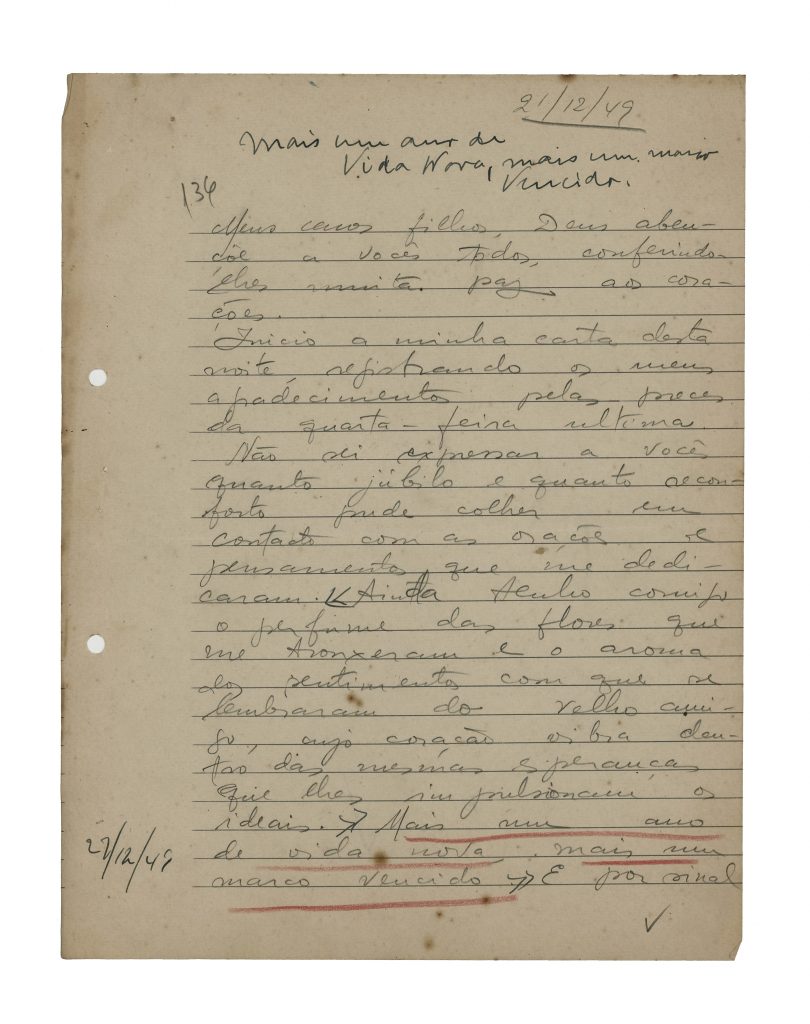 21/12/49
Mais um ano de
Vida Nova, mais um marco
Vencido.
134
Meus caros filhos, Deus aben-
çõe a vocês todos, conferindo-
lhes muita paz aos cora-
ções.
Inicio a minha carta desta
noite, registrando os meus
agradecimentos pelas preces
da quarta-feira ultima.
Não sei expressar a vocês
quanto júbilo e quanto recon-
forto pude colher em
contacto com as orações e
pensamentos que me dedi-
caram. Ainda tenho comigo
o perfume das flores que
me trouxeram e o aroma
dos sentimentos com que se
lembraram do velho ami-
go, cujo coração vibra den-
tro das mesmas esperanças
que lhes impulsionam os
ideais. Mais um ano
de vida nova, mais um
27/12/49
marco vencido E por sinal